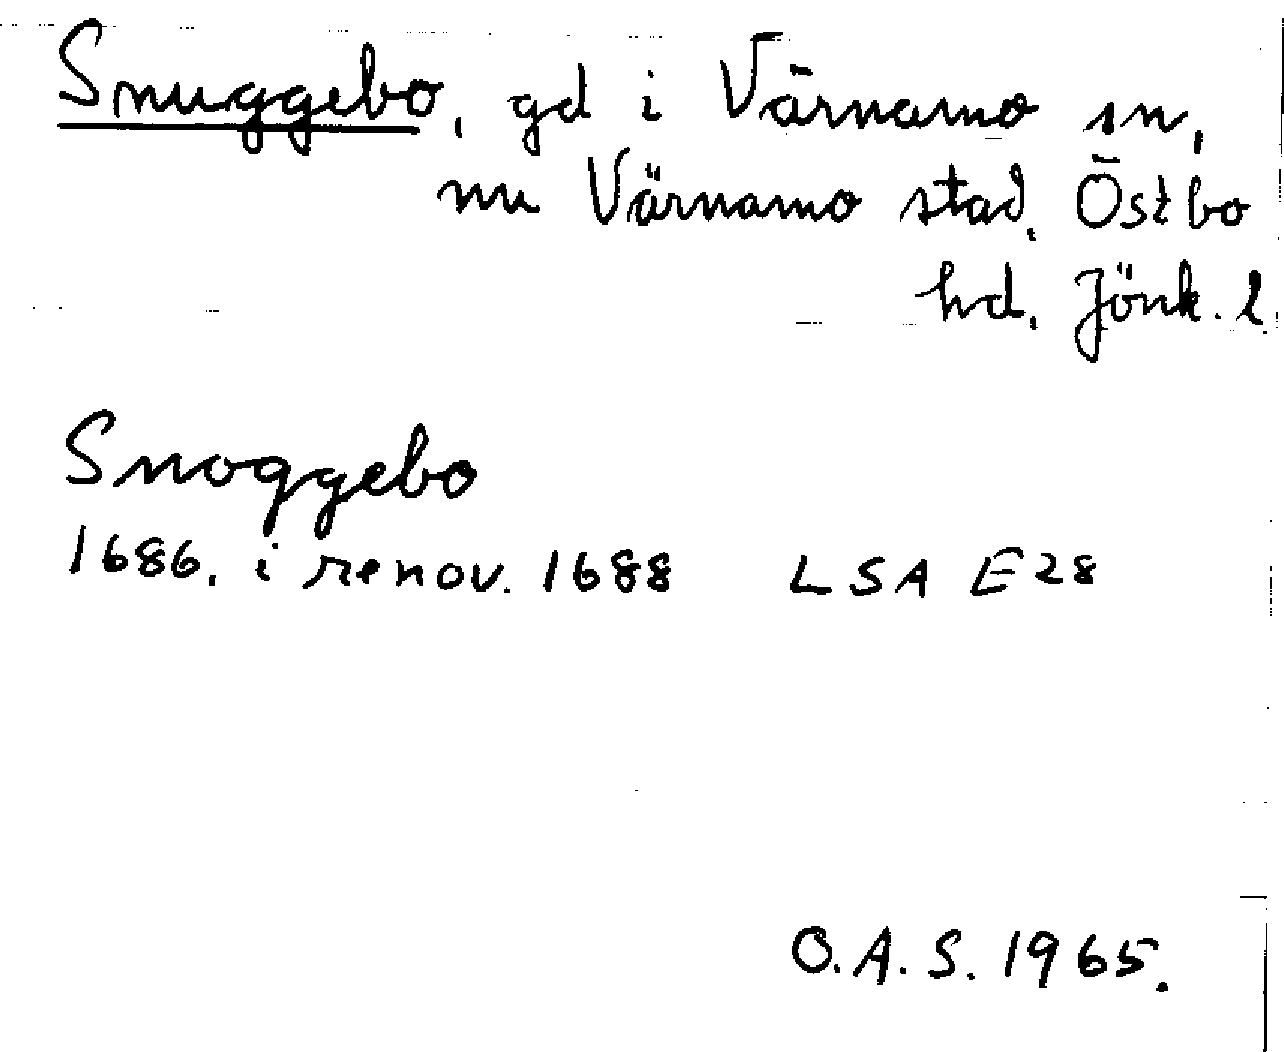 Snuggebo, gd i Värnamo sn,
nu Värnamo stad, Östbo
hd, Jönk. l.
Snoggebo
1686. i renov. 1688 LSA E28
O.A.S. 1965.